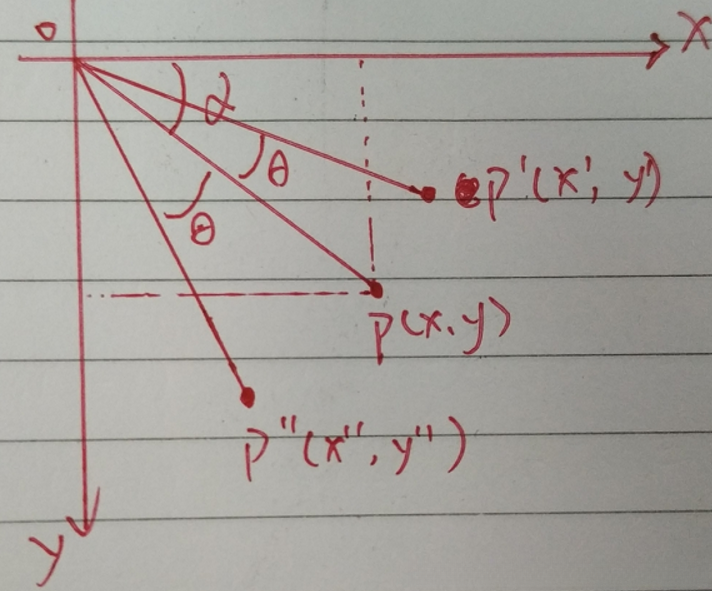 O
X
α
θ
p'(x', y')
θ
p(x, y)
p"(x", y")
y